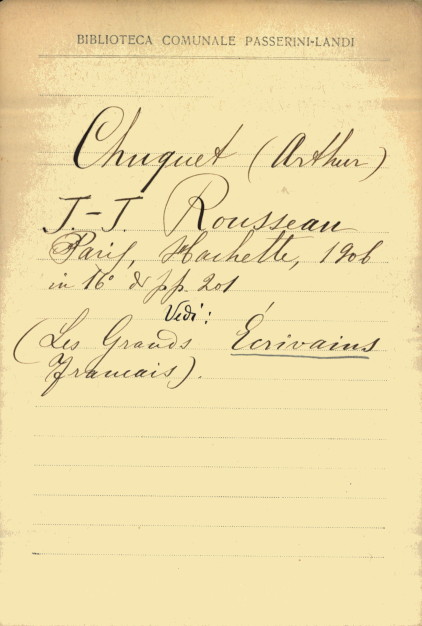 BIBLIOTECA COMUNALE PASSERINI-LANDI
Chuquet (Arthur)
J.-J. Rousseau
Paris, Hachette, 1906
in 16° di pp. 201
Vedi:
(Les Grands Écrivains
Français).